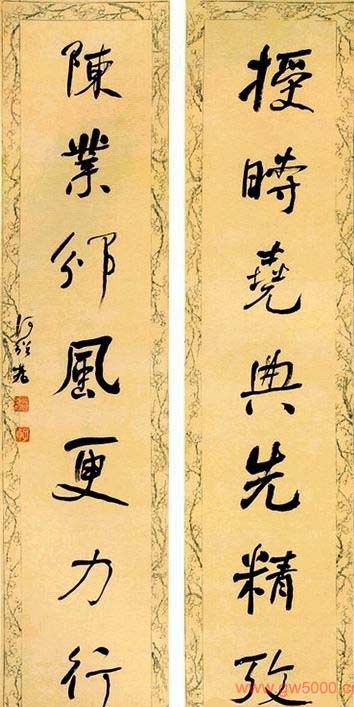 授時堯典先精攷
陳業邠風更力行
www.gw5000.c